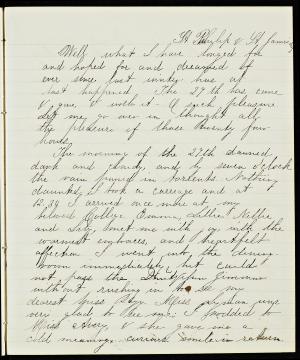 St. James
Well what I have longed for
and hoped for and dreamed of
ever since last winter has at
last happened. The 27th has come
& gone & with it - O such pleasure
let me go over in thought all
the pleasure of those twenty four
hours.
The morning of the 27th dawned
dark and cloudy, and by seven o'clock
the rain poured in torrents. Nothing
daunted, I took a carriage and at
12.34 I arrived once more at my
beloved College. Emma, Lillie, Nellie
and met me with the
warmest embraces, and heartfelt
affection. I went into the dining
room immediately, but could
not pass the
without rushing in to see my
dearest Miss Miss was
very glad to see me. I nodded to
Miss Avery, & she gave me a
cold meaning smile in return